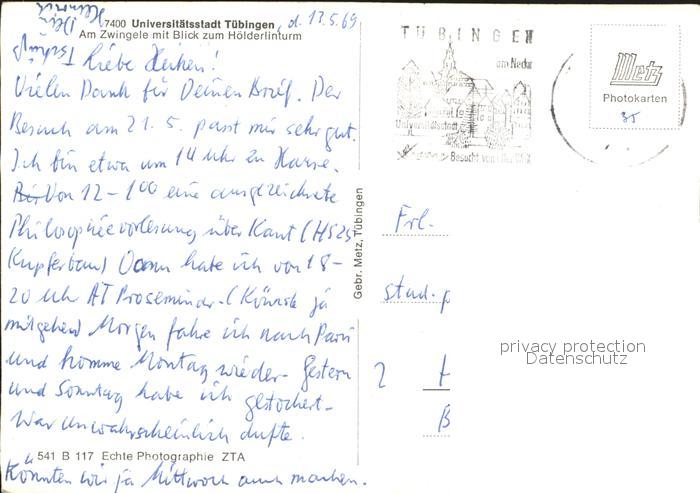 7400 Universitätsstadt Tübingen, d. 17.5.69
Am Zwingele mit Blick zum Hölderlinturm
Liebe Heiken!
Vielen Dank für Deinen Brief. Der
Besuch am 21.5. passt mir sehr gut.
Ich bin etwa um 14 Uhr zu Hause.
Von 12-1⁰⁰ eine ausgezeichnete
Philosophievorlesung über Kant (HS25
Kupferbau) Dann habe ich von 18-
20 Uhr AT Proseminar. (Könnte ja
mitgehen) Morgen fahre ich nach Paris
und komme Montag wieder. Gestern
und Sonntag habe ich gestochert.
War unwahrscheinlich dufte.
Könnten wir ja Mittwoch auch machen.
Tschüß
Dein
Heinrich
541 B 117 Echte Photographie ZTA
Gebr. Metz, Tübingen
TÜBINGEN
am Neckar
Universitätsstadt
Besucht
Metz
Photokarten
35
Frl.
stud. p
2
H
B
privacy protection
Datenschutz